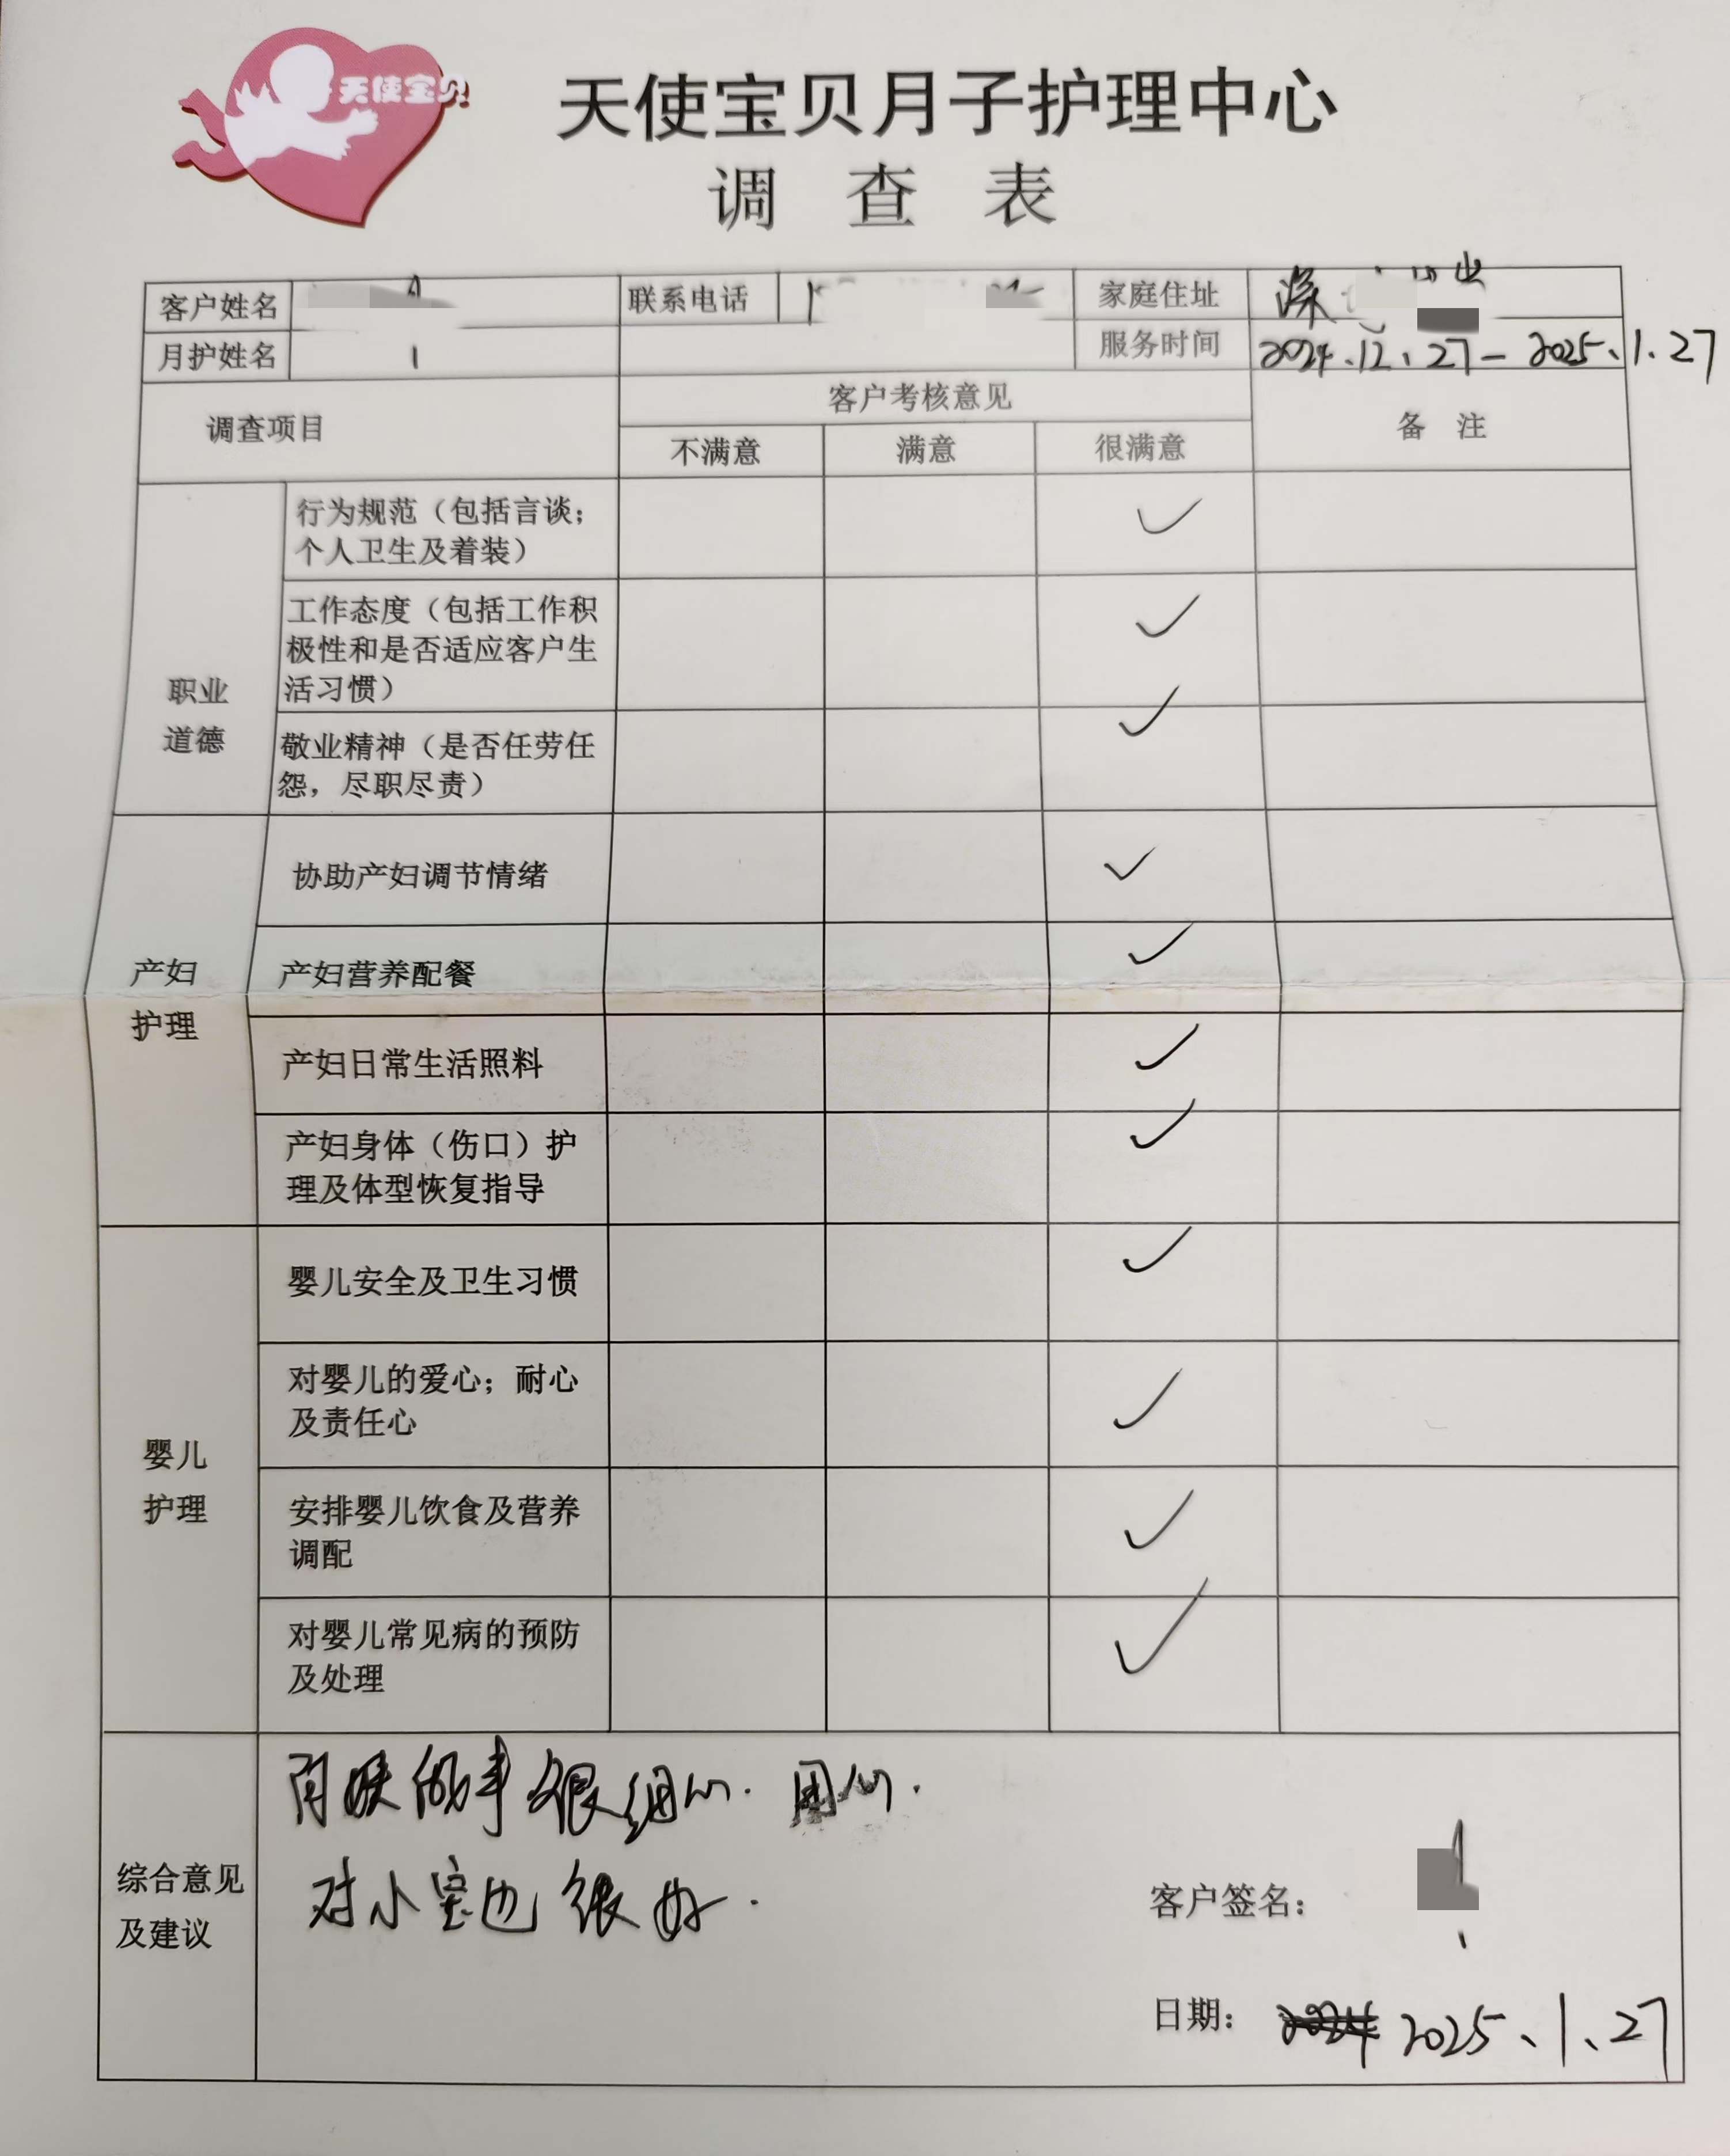 天使宝贝
天使宝贝月子护理中心
调 查 表
客户姓名 联系电话 家庭住址 深
月护姓名 服务时间 2024.12.27-2025.1.27
调查项目 客户考核意见 备 注
不满意 满意 很满意
职业
道德
行为规范（包括言谈；
个人卫生及着装） ✓
工作态度（包括工作积
极性和是否适应客户生
活习惯） ✓
敬业精神（是否任劳任
怨，尽职尽责） ✓
产妇
护理
协助产妇调节情绪 ✓
产妇营养配餐 ✓
产妇日常生活照料 ✓
产妇身体（伤口）护
理及体型恢复指导 ✓
婴儿
护理
婴儿安全及卫生习惯 ✓
对婴儿的爱心；耐心
及责任心 ✓
安排婴儿饮食及营养
调配 ✓
对婴儿常见病的预防
及处理 ✓
综合意见
及建议
月嫂做事很细心.用心.
对小宝也很好.
客户签名：
日期： 2025、1、27